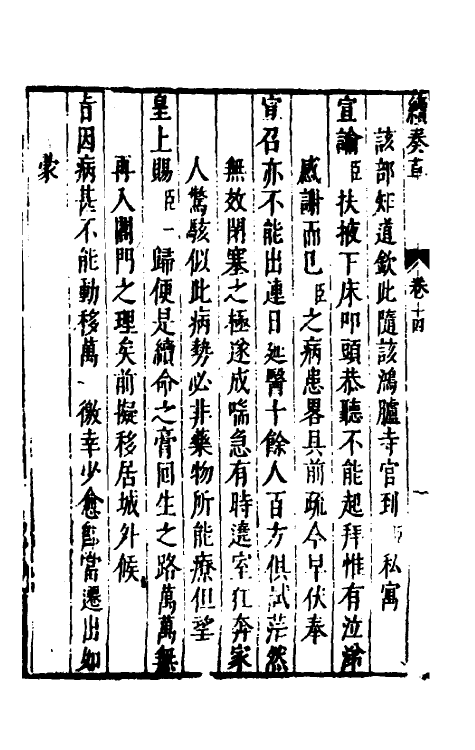 續奏草 卷十四 一
該部知道欽此隨該鴻臚寺官到臣私寓
宣諭臣扶掖下床叩頭恭聽不能起拜惟有泣涕
感謝而已臣之病患畧具前疏今早伏奉
宣召亦不能出連日延醫十餘人百方俱試茫然
無效閉塞之極遂成喘急有時遶室狂奔家
人驚駭似此病勢必非藥物所能療但望
皇上賜臣一歸便是續命之膏回生之路萬萬無
再入閣門之理矣前擬移居城外候
旨因病甚不能動移萬一徼幸少愈卽當遷出如
蒙